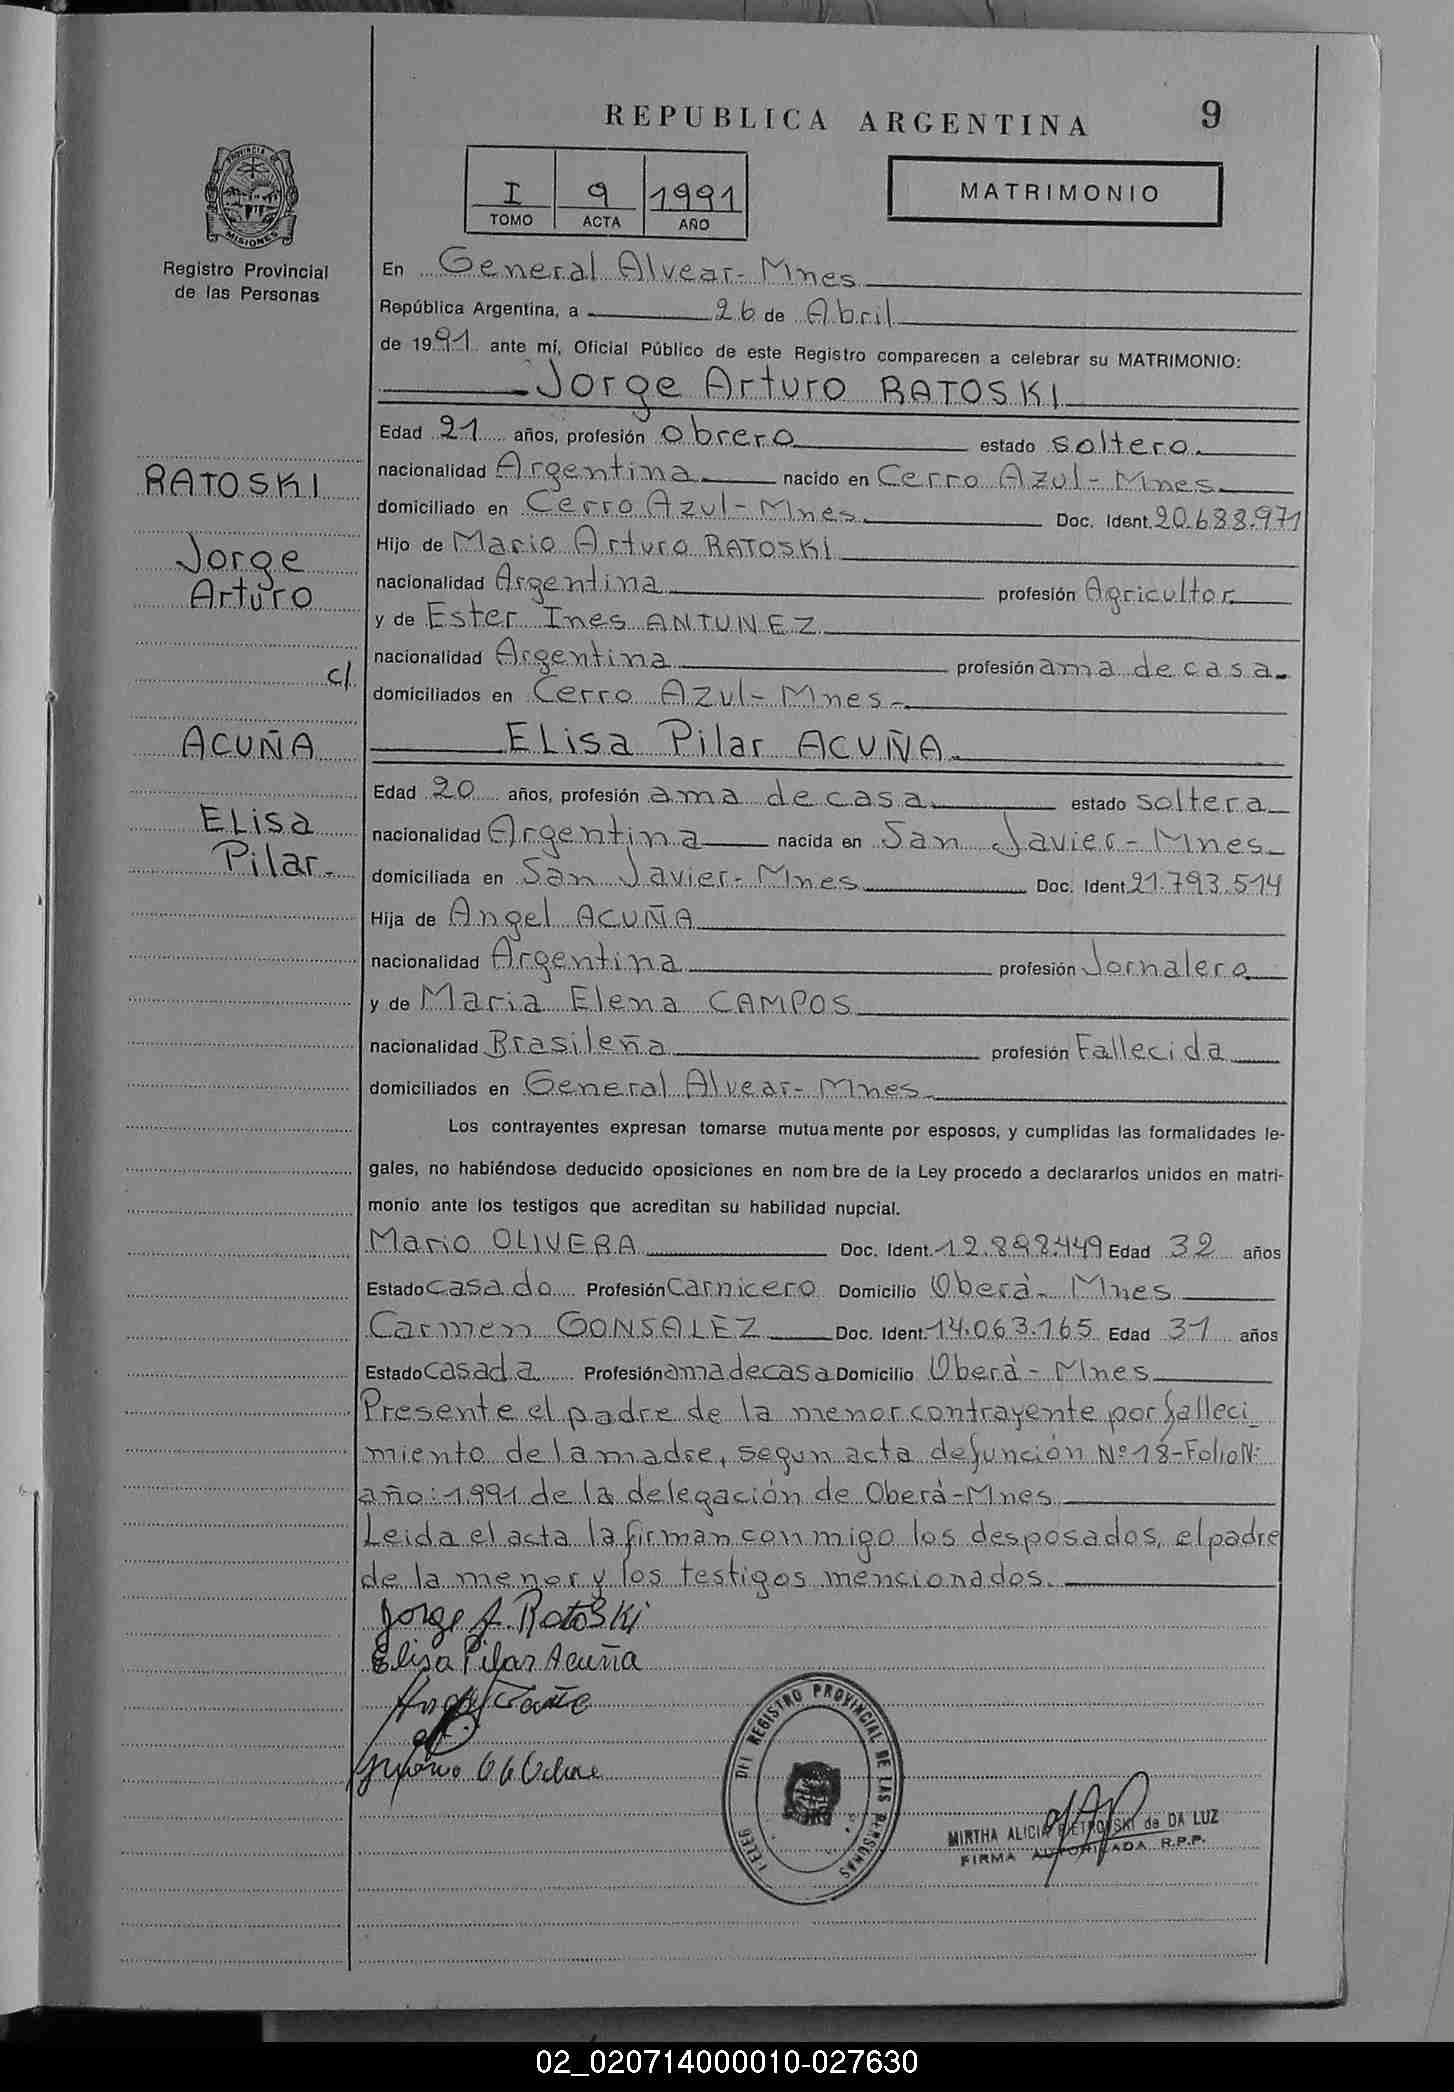 REPUBLICA ARGENTINA
9
PROVINCIA DE
MISIONES
Registro Provincial
de las Personas
I 9 1991
TOMO ACTA AÑO
MATRIMONIO
En General Alvear-Mnes
República Argentina, a 26 de Abril
de 1991 ante mí, Oficial Público de este Registro comparecen a celebrar su MATRIMONIO:
Jorge Arturo RATOSKI
Edad 21 años, profesión obrero estado soltero.
RATOSKI
nacionalidad Argentina nacido en Cerro Azul-Mnes
domiciliado en Cerro Azul-Mnes Doc. Ident. 20.688.971
Jorge
Arturo
Hijo de Mario Arturo RATOSKI
nacionalidad Argentina profesión Agricultor
y de Ester Ines ANTUNEZ
c/.
nacionalidad Argentina profesión ama de casa.
domiciliados en Cerro Azul-Mnes-
ACUÑA
ELisa Pilar ACUÑA
Edad 20 años, profesión ama de casa estado soltera
ELisa
Pilar.
nacionalidad Argentina nacida en San Javier-Mnes
domiciliada en San Javier-Mnes Doc. Ident. 21.793.514
Hija de Angel ACUÑA
nacionalidad Argentina profesión Jornalero
y de Maria Elena CAMPOS
nacionalidad Brasileña profesión Fallecida
domiciliados en General Alvear-Mnes
Los contrayentes expresan tomarse mutuamente por esposos, y cumplidas las formalidades le-
gales, no habiéndose deducido oposiciones en nombre de la Ley procedo a declararlos unidos en matri-
monio ante los testigos que acreditan su habilidad nupcial.
Mario OLIVERA Doc. Ident. 12.898.449 Edad 32 años
Estado casado Profesión Carnicero Domicilio Oberà-Mnes
Carmen GONSALEZ Doc. Ident. 14.063.165 Edad 31 años
Estado casada Profesión ama de casa Domicilio Oberà-Mnes
Presente el padre de la menor contrayente por falleci_
miento de la madre, segun acta defunción Nº18-Folio Nº
año:1991 de la delegación de Oberà-Mnes
Leida el acta la firman conmigo los desposados, el padre
de la menor y los testigos mencionados.
Jorge A. Ratoski
Elisa Pilar Acuña
REGISTRO PROVINCIAL DE LAS PERSONAS
MIRTHA ALICIA PIETROWSKI de DA LUZ
FIRMA AUTORIZADA R.P.P.
02_020714000010-027630